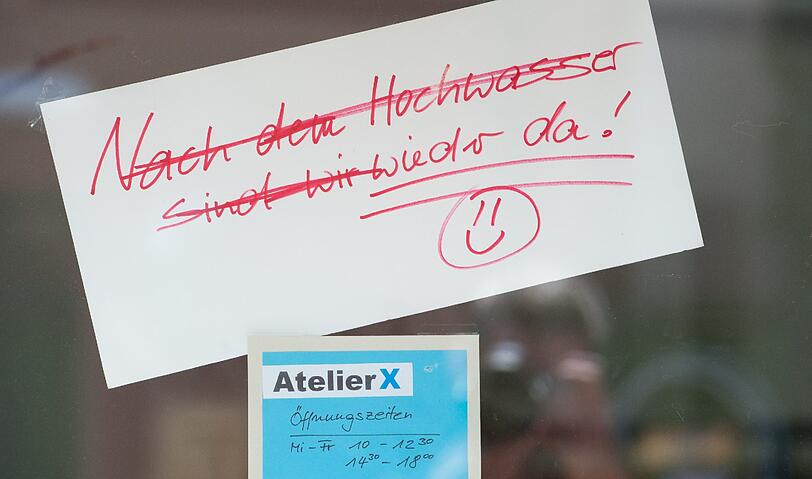 Nach dem Hochwasser
sind wir wieder da!
Atelier X
Öffnungszeiten
Mi - Fr 10 - 12³⁰
14³⁰ - 18⁰⁰